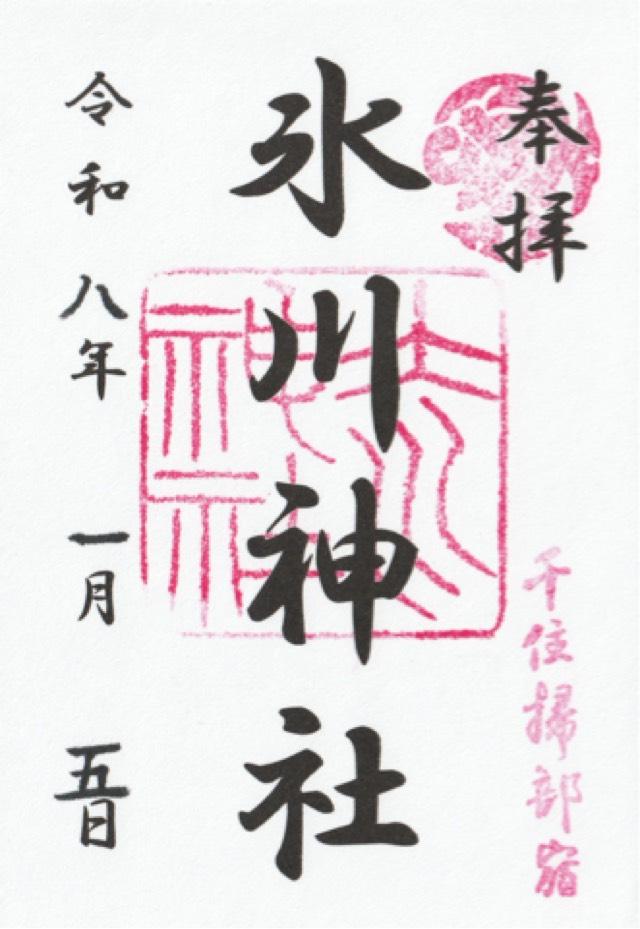 奉拝
千住掃部宿
氷川神社
令和八年一月五日